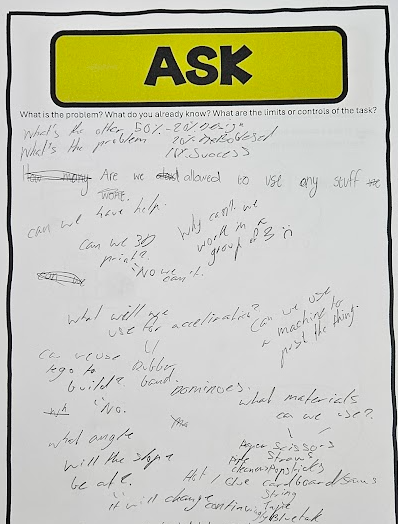 ASK
What is the problem? What do you already know? What are the limits or controls of the task?
What's the other 50%-20% design
What's the problem 20%
10% Success
Are we allowed to use any stuff we
want.
can we have help.
Why can't we
work in a
group of 3
can we 3D
print?
No we
can't.
what will we
use for acceleration?
Can we use
a machine to
print the thing.
Can we use
lego to
build?
No.
Rubber
band.
Dominoes.
what materials
can we use?
Paper Scissors
Pipe Straws
cleaners Popsticks
Hot glue cardboard
String
Tape
Bluetack
what angle
will the slope
be at.
it will change continuing